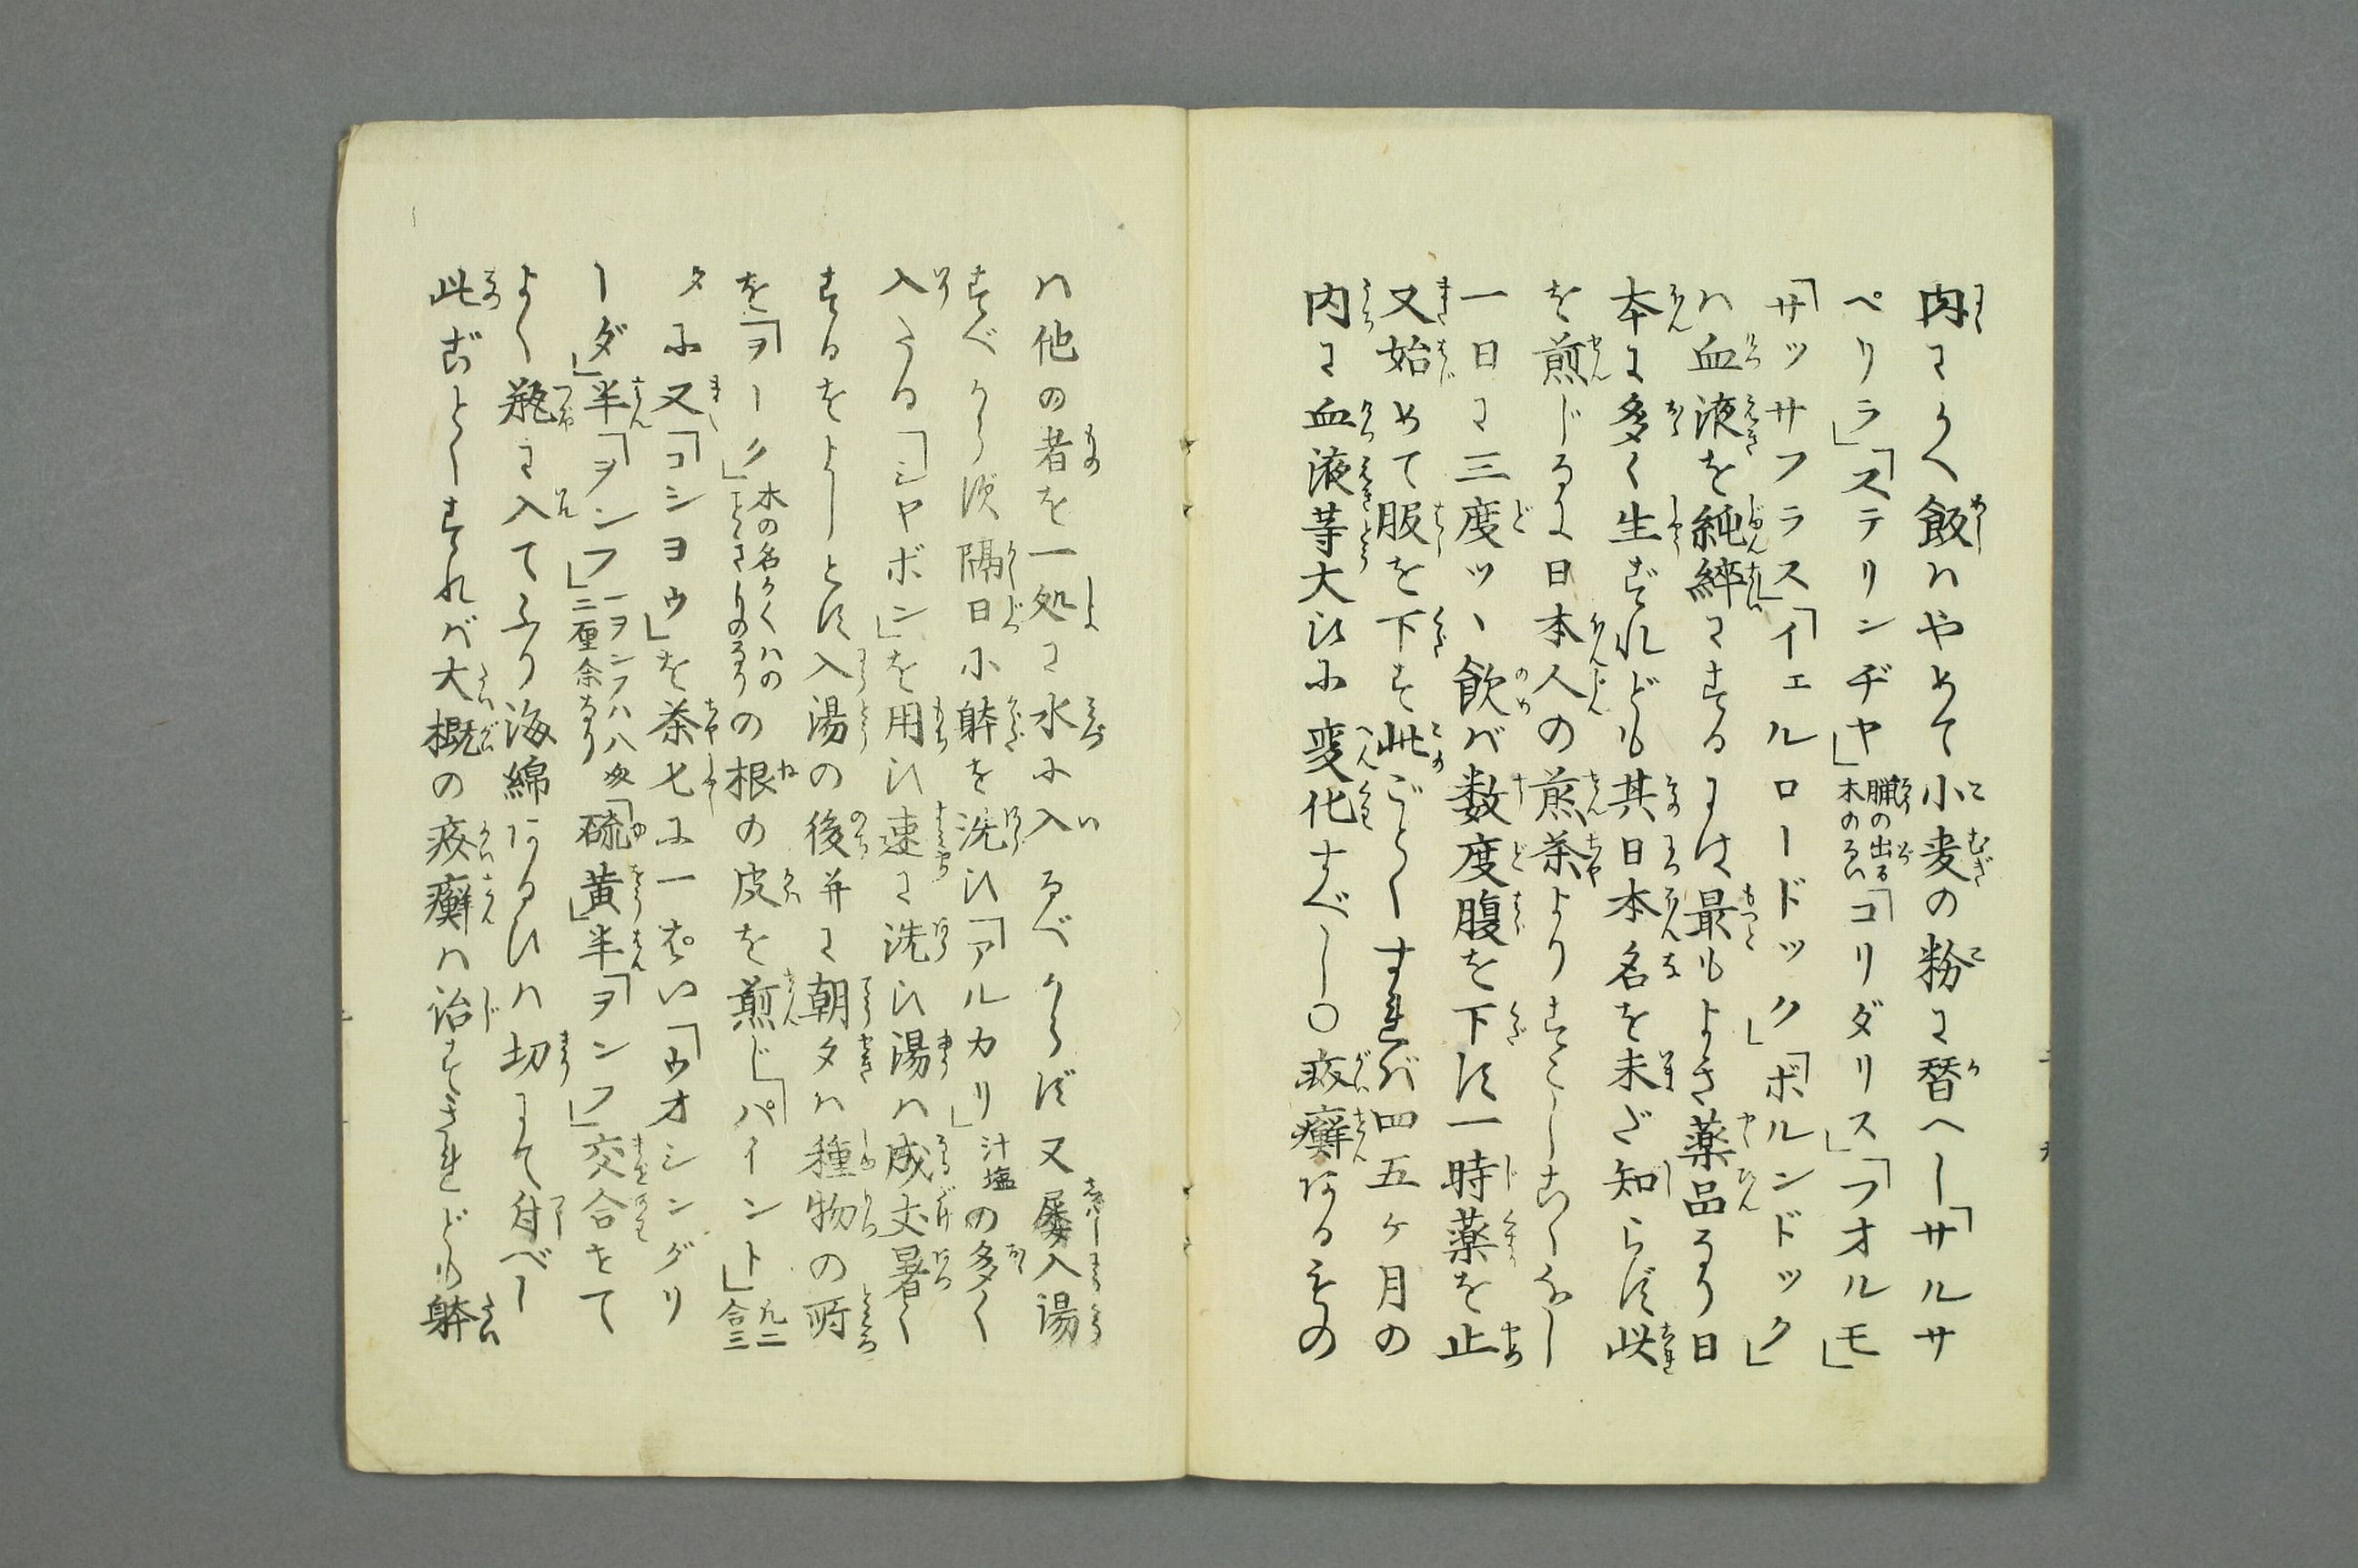 肉にかへ飯ハやめて小麦の粉に替へし「サルサ
ペリラ」「ステリンヂヤ」臘の出る木のるい「コリダリス」「フオルモ」
「サッサフラス」「イェルロードック」「ボルンドック」
ハ血液を純粋にするには最もよき薬品なり日
本に多く生ずれども其日本名を未だ知らず此
を煎じるに日本人の煎茶よりすこしあくなし
一日に三度ツヽ飲バ数度腹を下す一時薬を止
又始めて服を下す此ごとくすればバ四五ケ月の
内に血液等大ひに変化すべし〇疥癬あるもの
ハ他の者を一処に水に入るべからず又屡入湯
すべからず隔日に躰を洗ひ「アルカリ」汁塩の多く
入りたる「シヤボン」を用ひ速に洗ひ湯ハ成丈暑く
するをよしとす入湯の後并に朝夕ハ種物の所
を「ヲーク」木の名かくハのことさりのるりの根の皮を煎じ「パイント」九二合三
タに又「コシヨウ」を茶匕に一ぱい「ウオシングリ
ーダ」半「ヲンフ」一ヲンフハ八匁二厘余なり「硫黄」半「ヲンフ」交合をて
よく瓶に入てふり海綿あるひハ切にて付べし
此ごとくすれバ大概の疥癬ハ治すされども躰